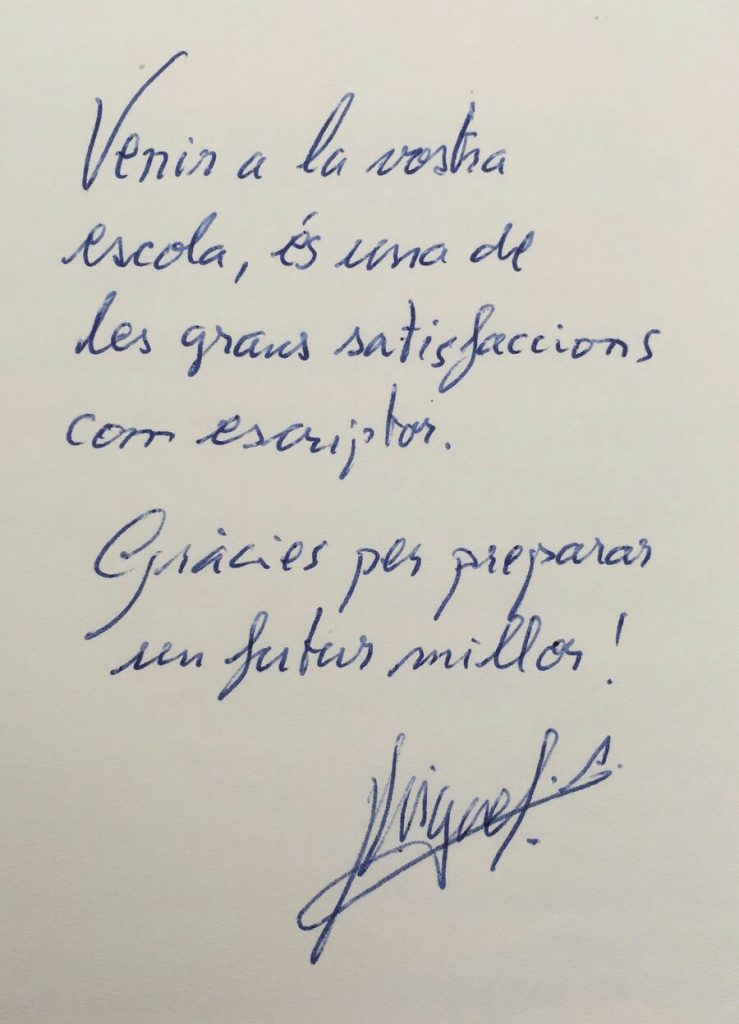 Venir a la vostra
escola, és una de
les grans satisfaccions
com escriptor.
Gràcies per preparar
un futur millor!